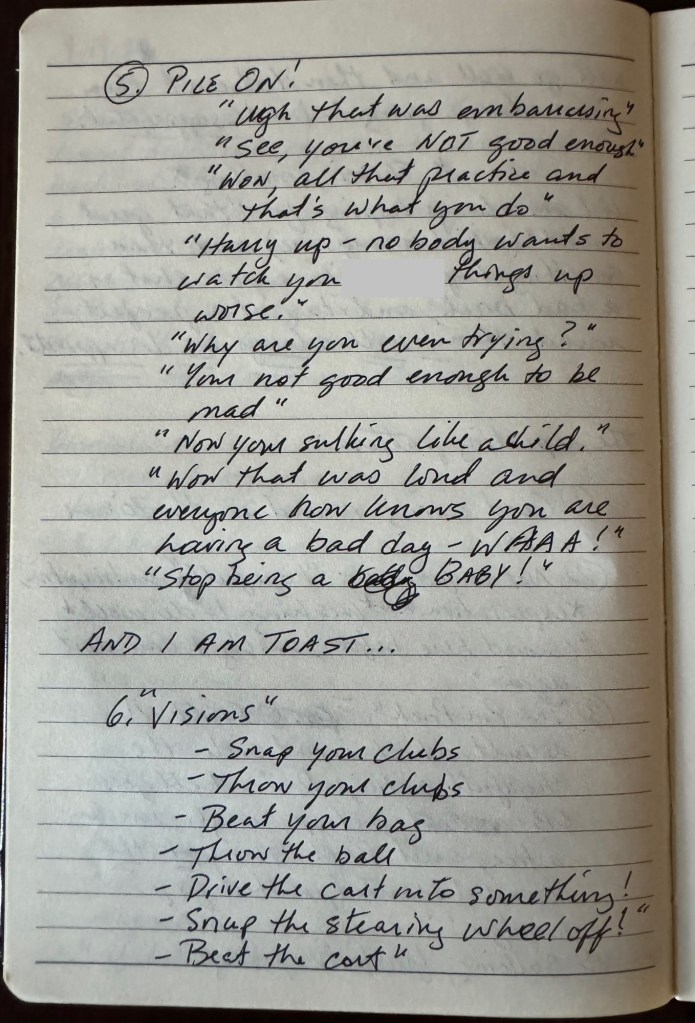 5. PILE ON!
"Ugh that was embarassing"
"See, you're NOT good enough"
"Wow, all that practice and
that's what you do"
"Hurry up - nobody wants to
watch you things up
worse."
"Why are you even trying?"
"Your not good enough to be
mad"
"Now your sulking like a child."
"Wow that was loud and
everyone now knows you are
having a bad day - WAAAA!"
"Stop being a BABY!"
AND I AM TOAST...
6. "Visions"
- Snap your clubs
- Throw your clubs
- Beat your bag
- Throw the ball
- Drive the cart into something!
- Snap the stearing wheel off!"
- Beat the cart"